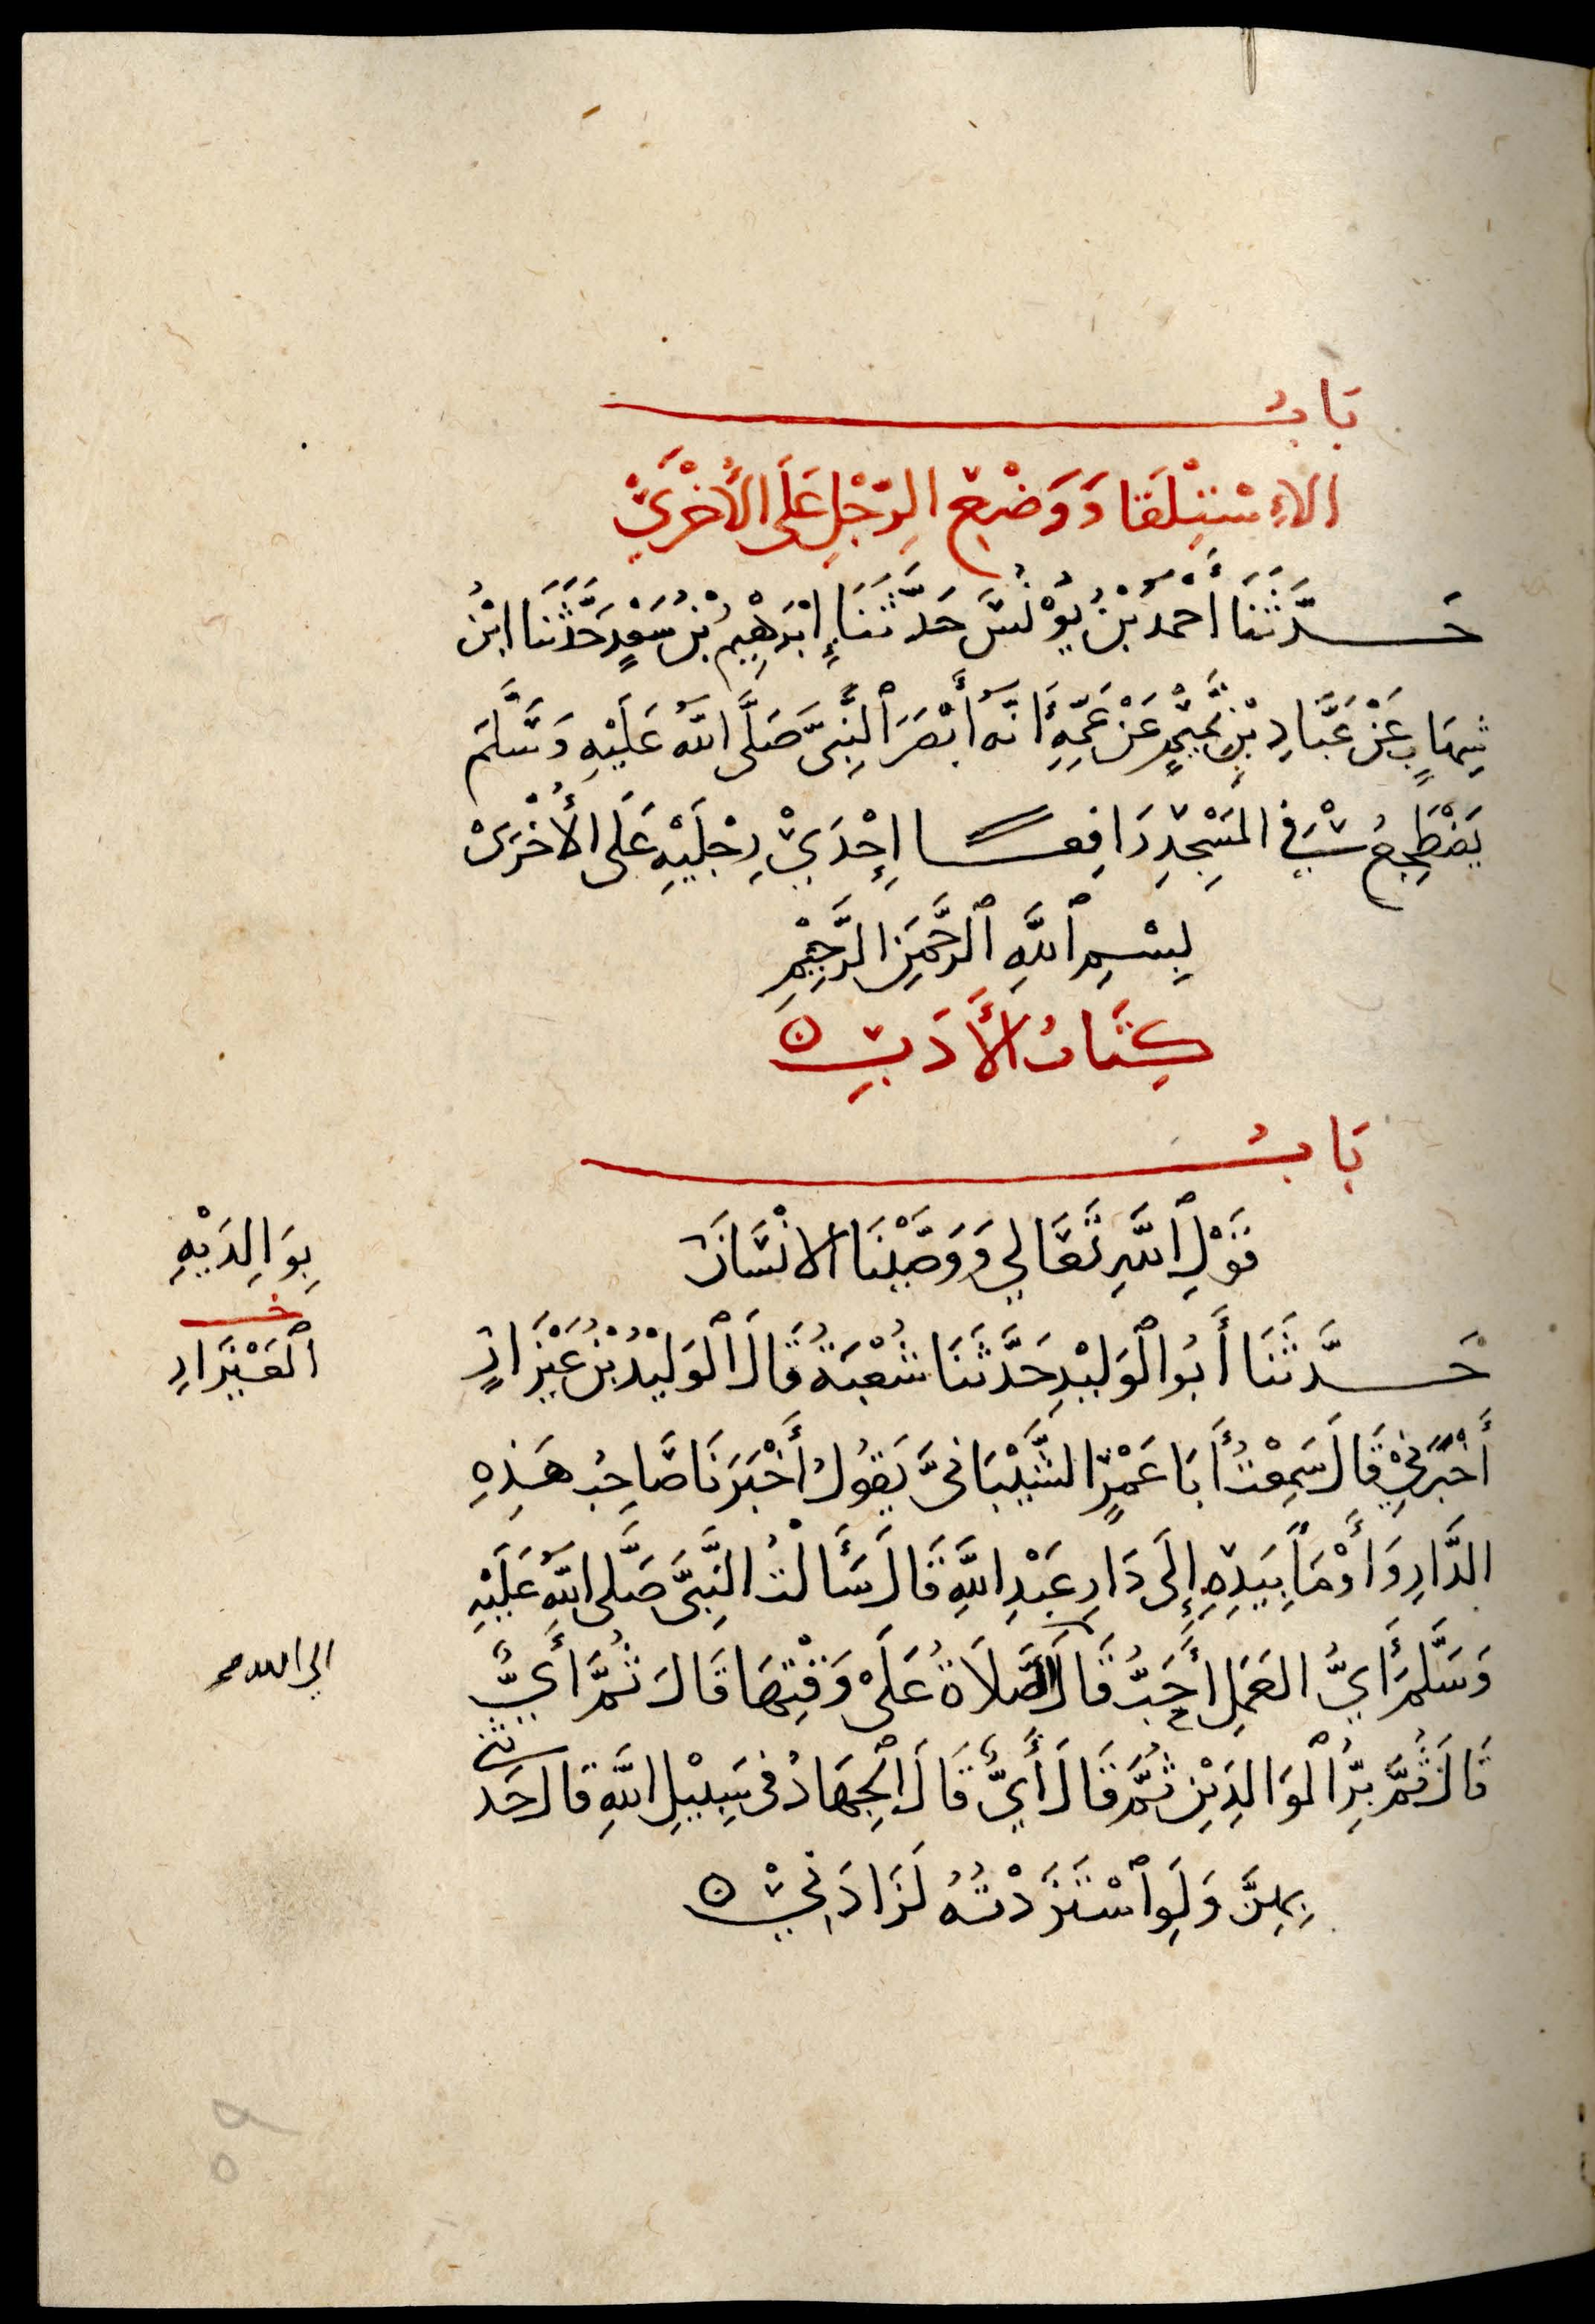 بَابُ
الاِسْتِلْقَا وَوَضْعِ الرِّجْلِ عَلَى الأُخْرَىْ
حَدَّثَنَا أَحْمَدُ بْنُ يُوْنُسَ حَدَّثَنَا إِبْرَهِيْمُ بْنُ سَعْدٍ حَدَّثَنَا ابْنُ
شِهَابٍ عَنْ عَبَّادِ بْنِ تَمِيْمٍ عَنْ عَمِّهِ أَنَّهُ أَبْصَرَ النَّبِىَّ صَلَّى اللهُ عَلَيْهِ وَسَلَّمَ
يَضْطَجِعُ فِي المَسْجِدِ رَافِعًا إِحْدَيْ رِجْلَيْهِ عَلَى الأُخْرَىْ
بِسْمِ ٱللَّهِ ٱلرَّحْمَنِ الرَّحِيْمِ
كِتَابُ الأَدَبِ ۝
بَابُ
قَوْلِ ٱللَّهِ تَعَالِي وَوَصَّيْنَا الانْسَانَ
بِوَالِدَيْهِ
حَدَّثَنَا أَبُو الْوَلِيْدِ حَدَّثَنَا شُعْبَةُ قَالَ الْوَلِيْدُ بْنُ عَيْزَارٍ
خ
ٱلْعَيْزَارِ
أَخْبَرَنِيْ قَالَ سَمِعْتُ أَبَا عَمْرٍ الشَّيْبَانِىَّ يَقُولُ أَخْبَرَنَا صَاحِبُ هَذِهِ
الدَّارِ وَأَوْمَأَ بِيَدِهِ إِلَى دَارِ عَبْدِ اللَّهِ قَالَ سَأَلْتُ النَّبِىَّ صَلَّى اللَّهُ عَلَيْهِ
وَسَلَّمَ أَيُّ العَمَلِ أَحَبُّ قَالَ الصَّلَاةُ عَلَىْ وَقْتِهَا قَالَ ثُمَّ أَيُّ
الى الله صح
قَالَ ثُمَّ بِرُّ الْوَالِدَيْنِ ثُمَّ قَالَ أَيُّ قَالَ الْجِهَادُ فى سَبِيْلِ اللَّهِ قَالَ حَدثنى
بِهِنَّ وَلَوِ ٱسْتَزَدْتُهُ لَزَادَنِيْ ۝